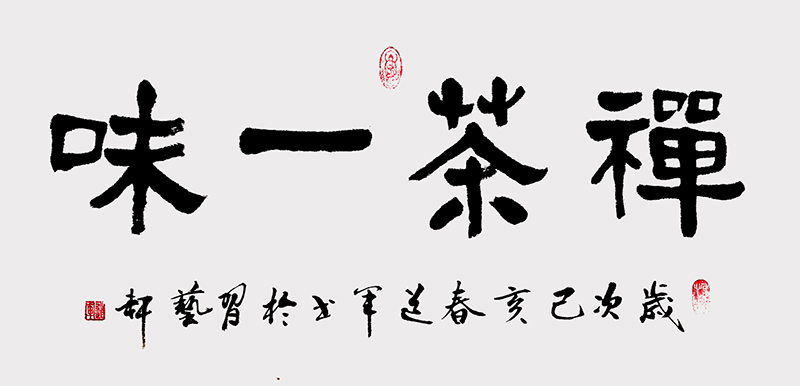 禪茶一味
歲次己亥春道軍书於習藝軒